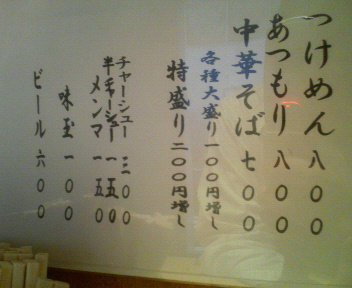 つけめん 八〇〇
あつもり 八〇〇
中華そば 七〇〇
各種大盛り 一〇〇円増し
特盛り 二〇〇円増し
チャーシュー 三〇〇
半チャーシュー 一五〇
メンマ 一五〇
味玉 一〇〇
ビール 六〇〇